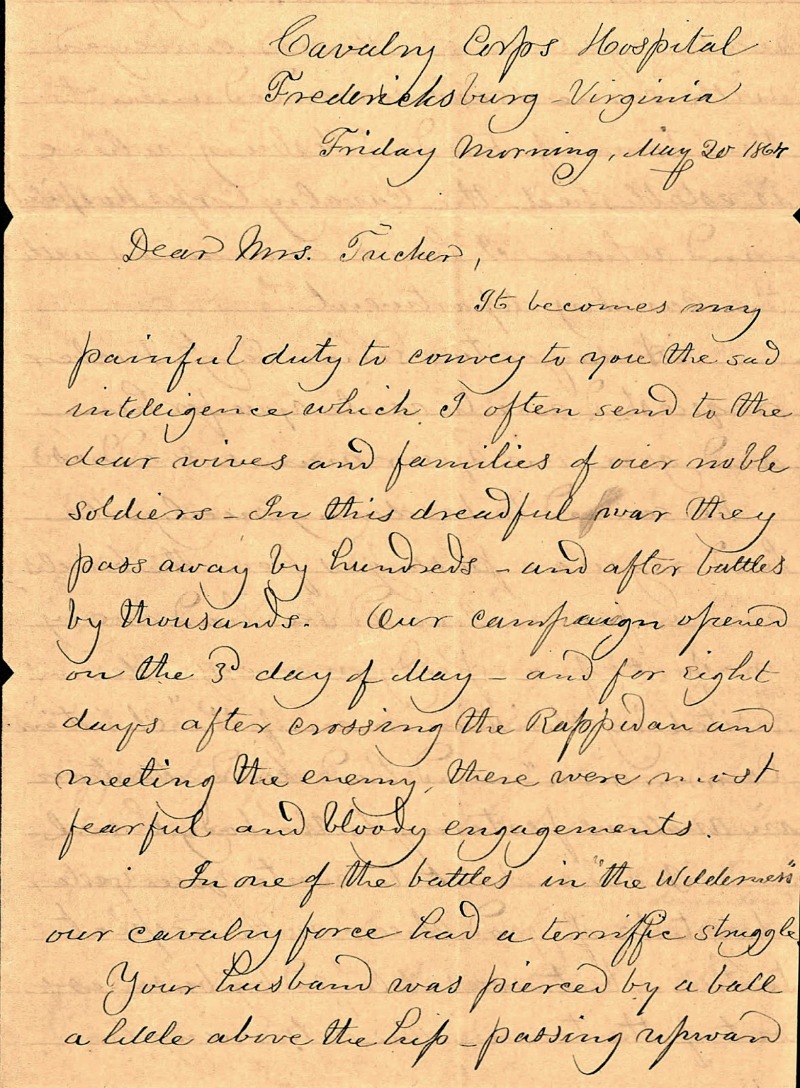 Cavalry Corps Hospital
Fredericksburg - Virginia
Friday Morning, May 20 1864
Dear Mrs. Tucker,
It becomes my
painful duty to convey to you the sad
intelligence which I often send to the
dear wives and families of our noble
soldiers - In this dreadful war they
pass away by hundreds - and after battles
by thousands. Our campaign opened
on the 3d day of May - and for eight
days after crossing the Rappidan and
meeting the enemy, there were most
fearful and bloody engagements.
In one of the battles in "the Wilderness"
our cavalry force had a terriffic struggle
Your husband was pierced by a ball
a little above the hip - passing upward